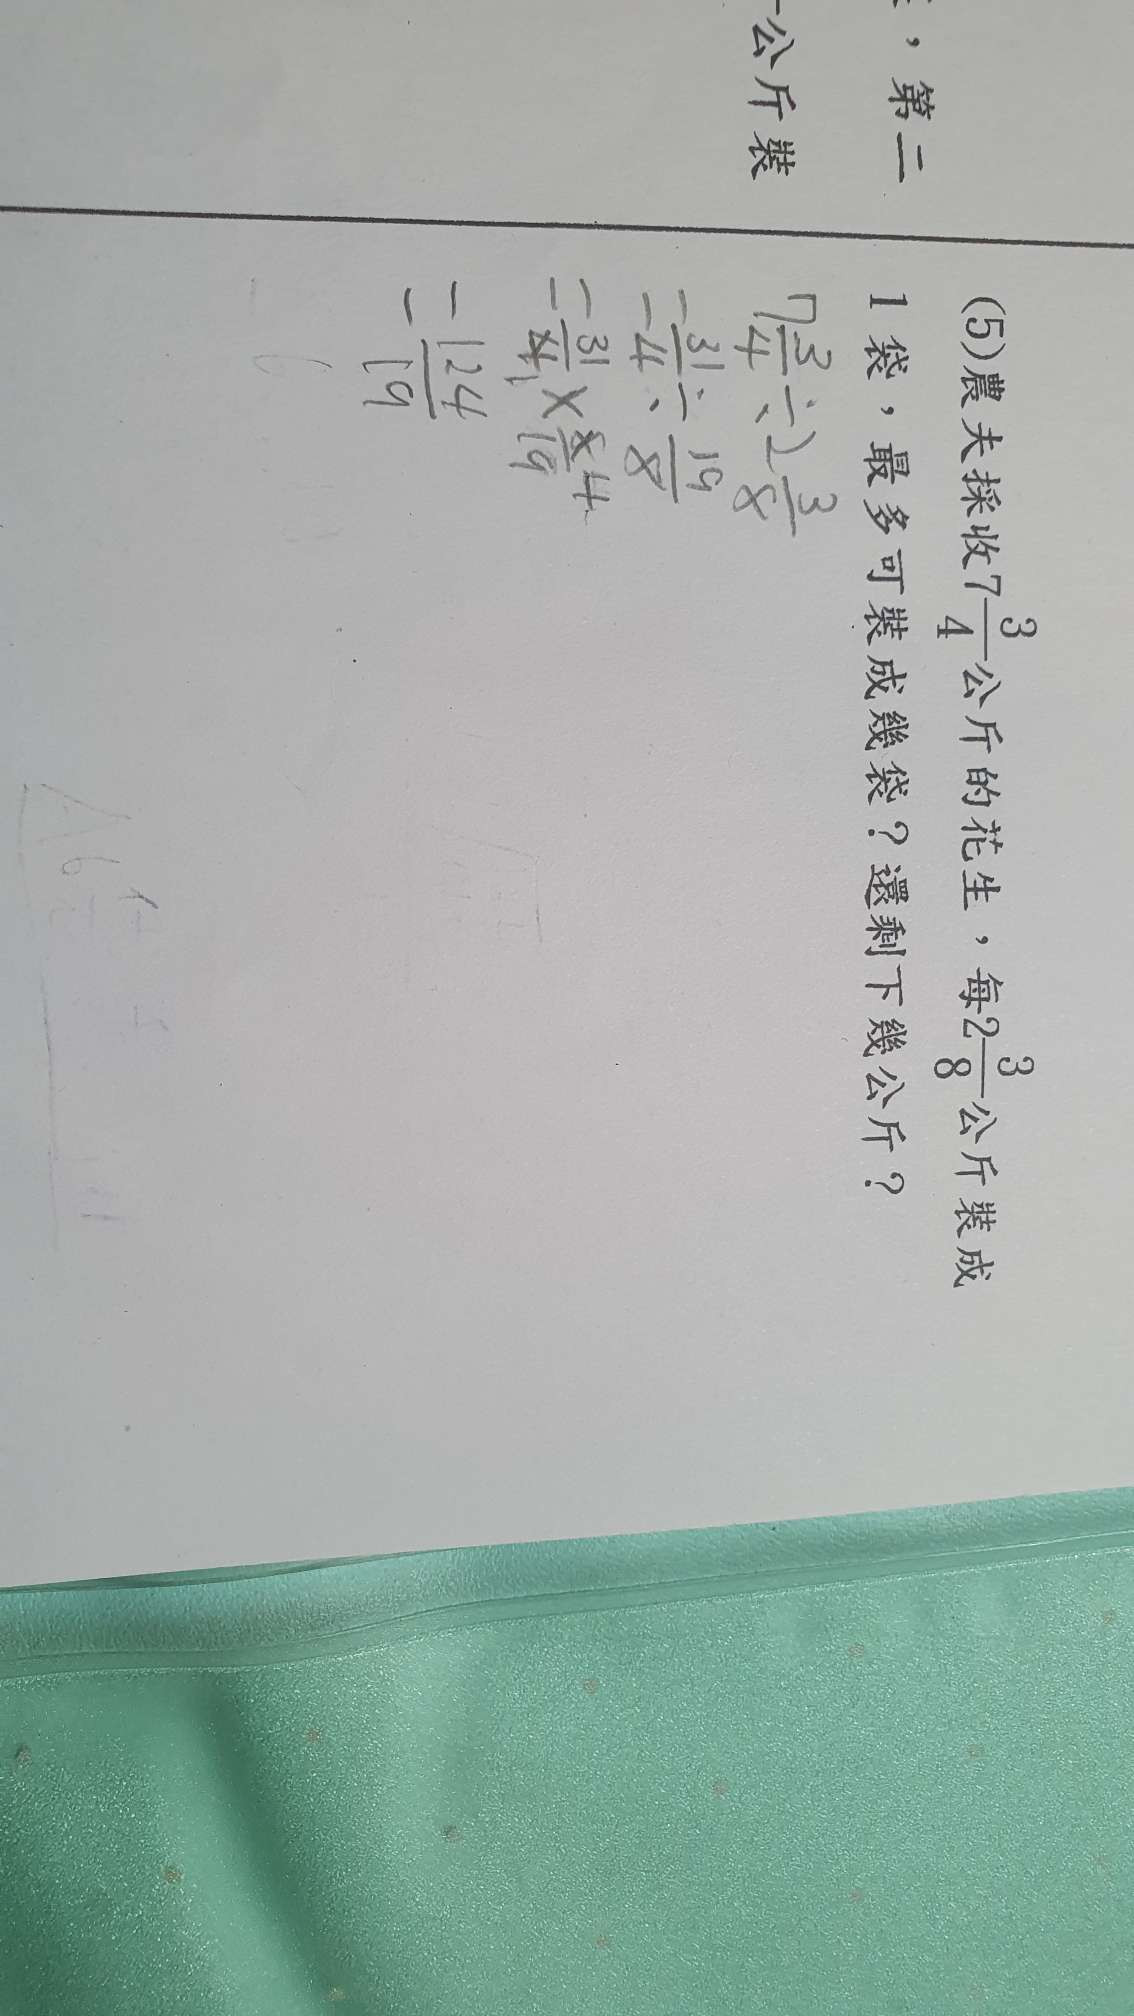 ，第二
公斤裝
(5)農夫採收7 3/4公斤的花生，每2 3/8公斤裝成
1袋，最多可裝成幾袋？還剩下幾公斤？
7 3/4 ÷ 2 3/8
= 31/4 ÷ 19/8
= 31/4 1 × 8/19 4
= 124/19
=